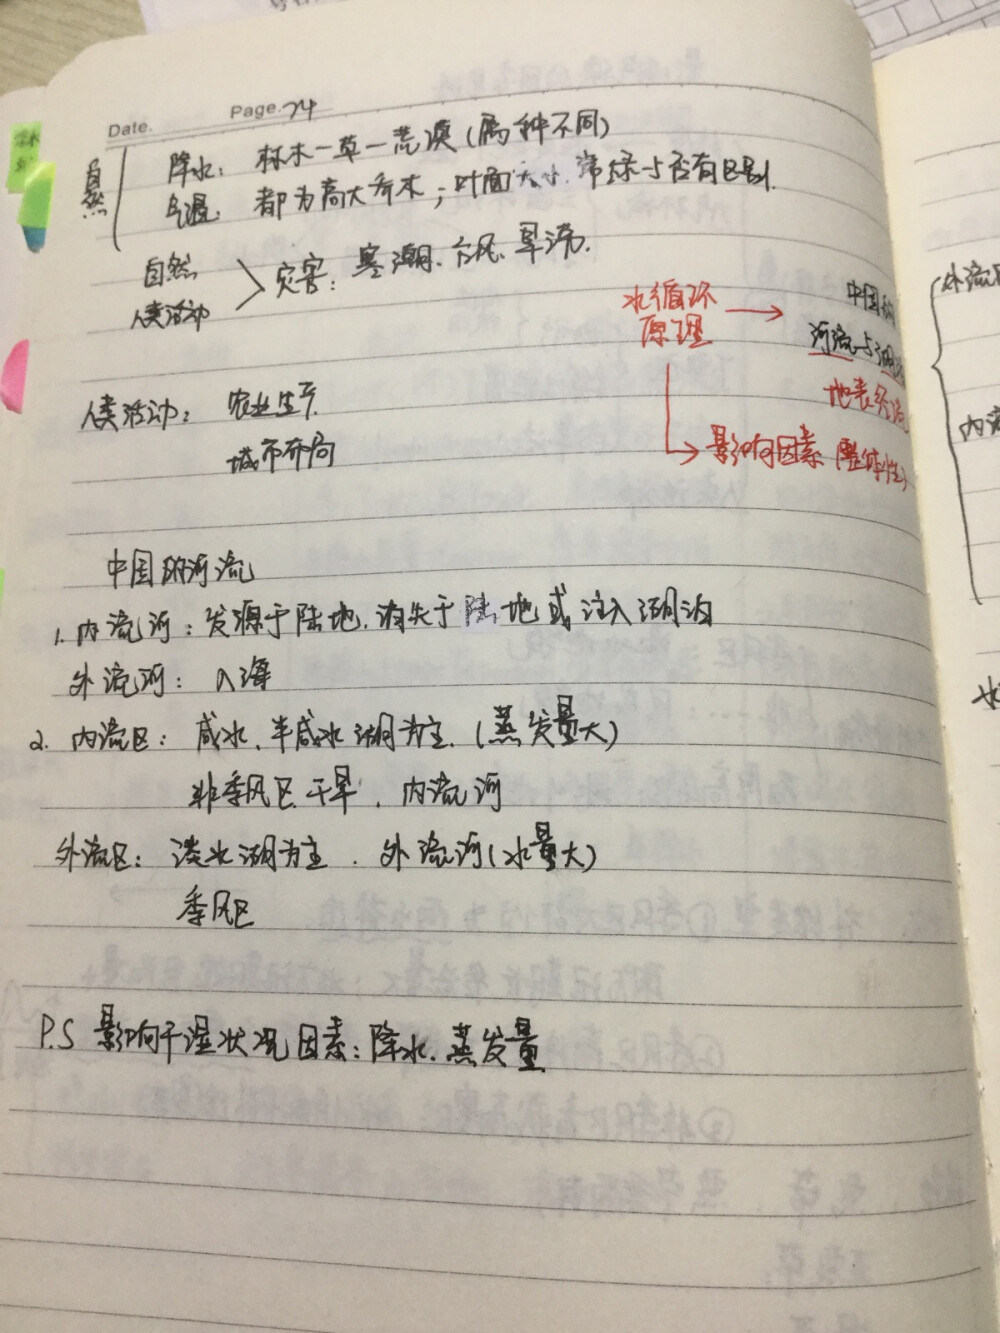 Date.
Page. 74
自然
降水: 林木一草一荒漠(属种不同)
气温: 都为高大乔木; 叶面大小. 常绿与否有区别.
自然
人类活动
灾害: 寒潮. 台风. 旱涝.
水循环
原理
中国的
河流与湖泊
地表径流
影响因素 (整体性)
人类活动: 农业生产
城市布局
中国的河流
1. 内流河: 发源于陆地. 消失于陆地或注入湖泊
外流河: 入海
2. 内流区: 咸水. 半咸水湖为主. (蒸发量大)
非季风区. 干旱. 内流河
外流区: 淡水湖为主. 外流河(水量大)
季风区
P.S 影响干湿状况因素: 降水. 蒸发量
外流
内流